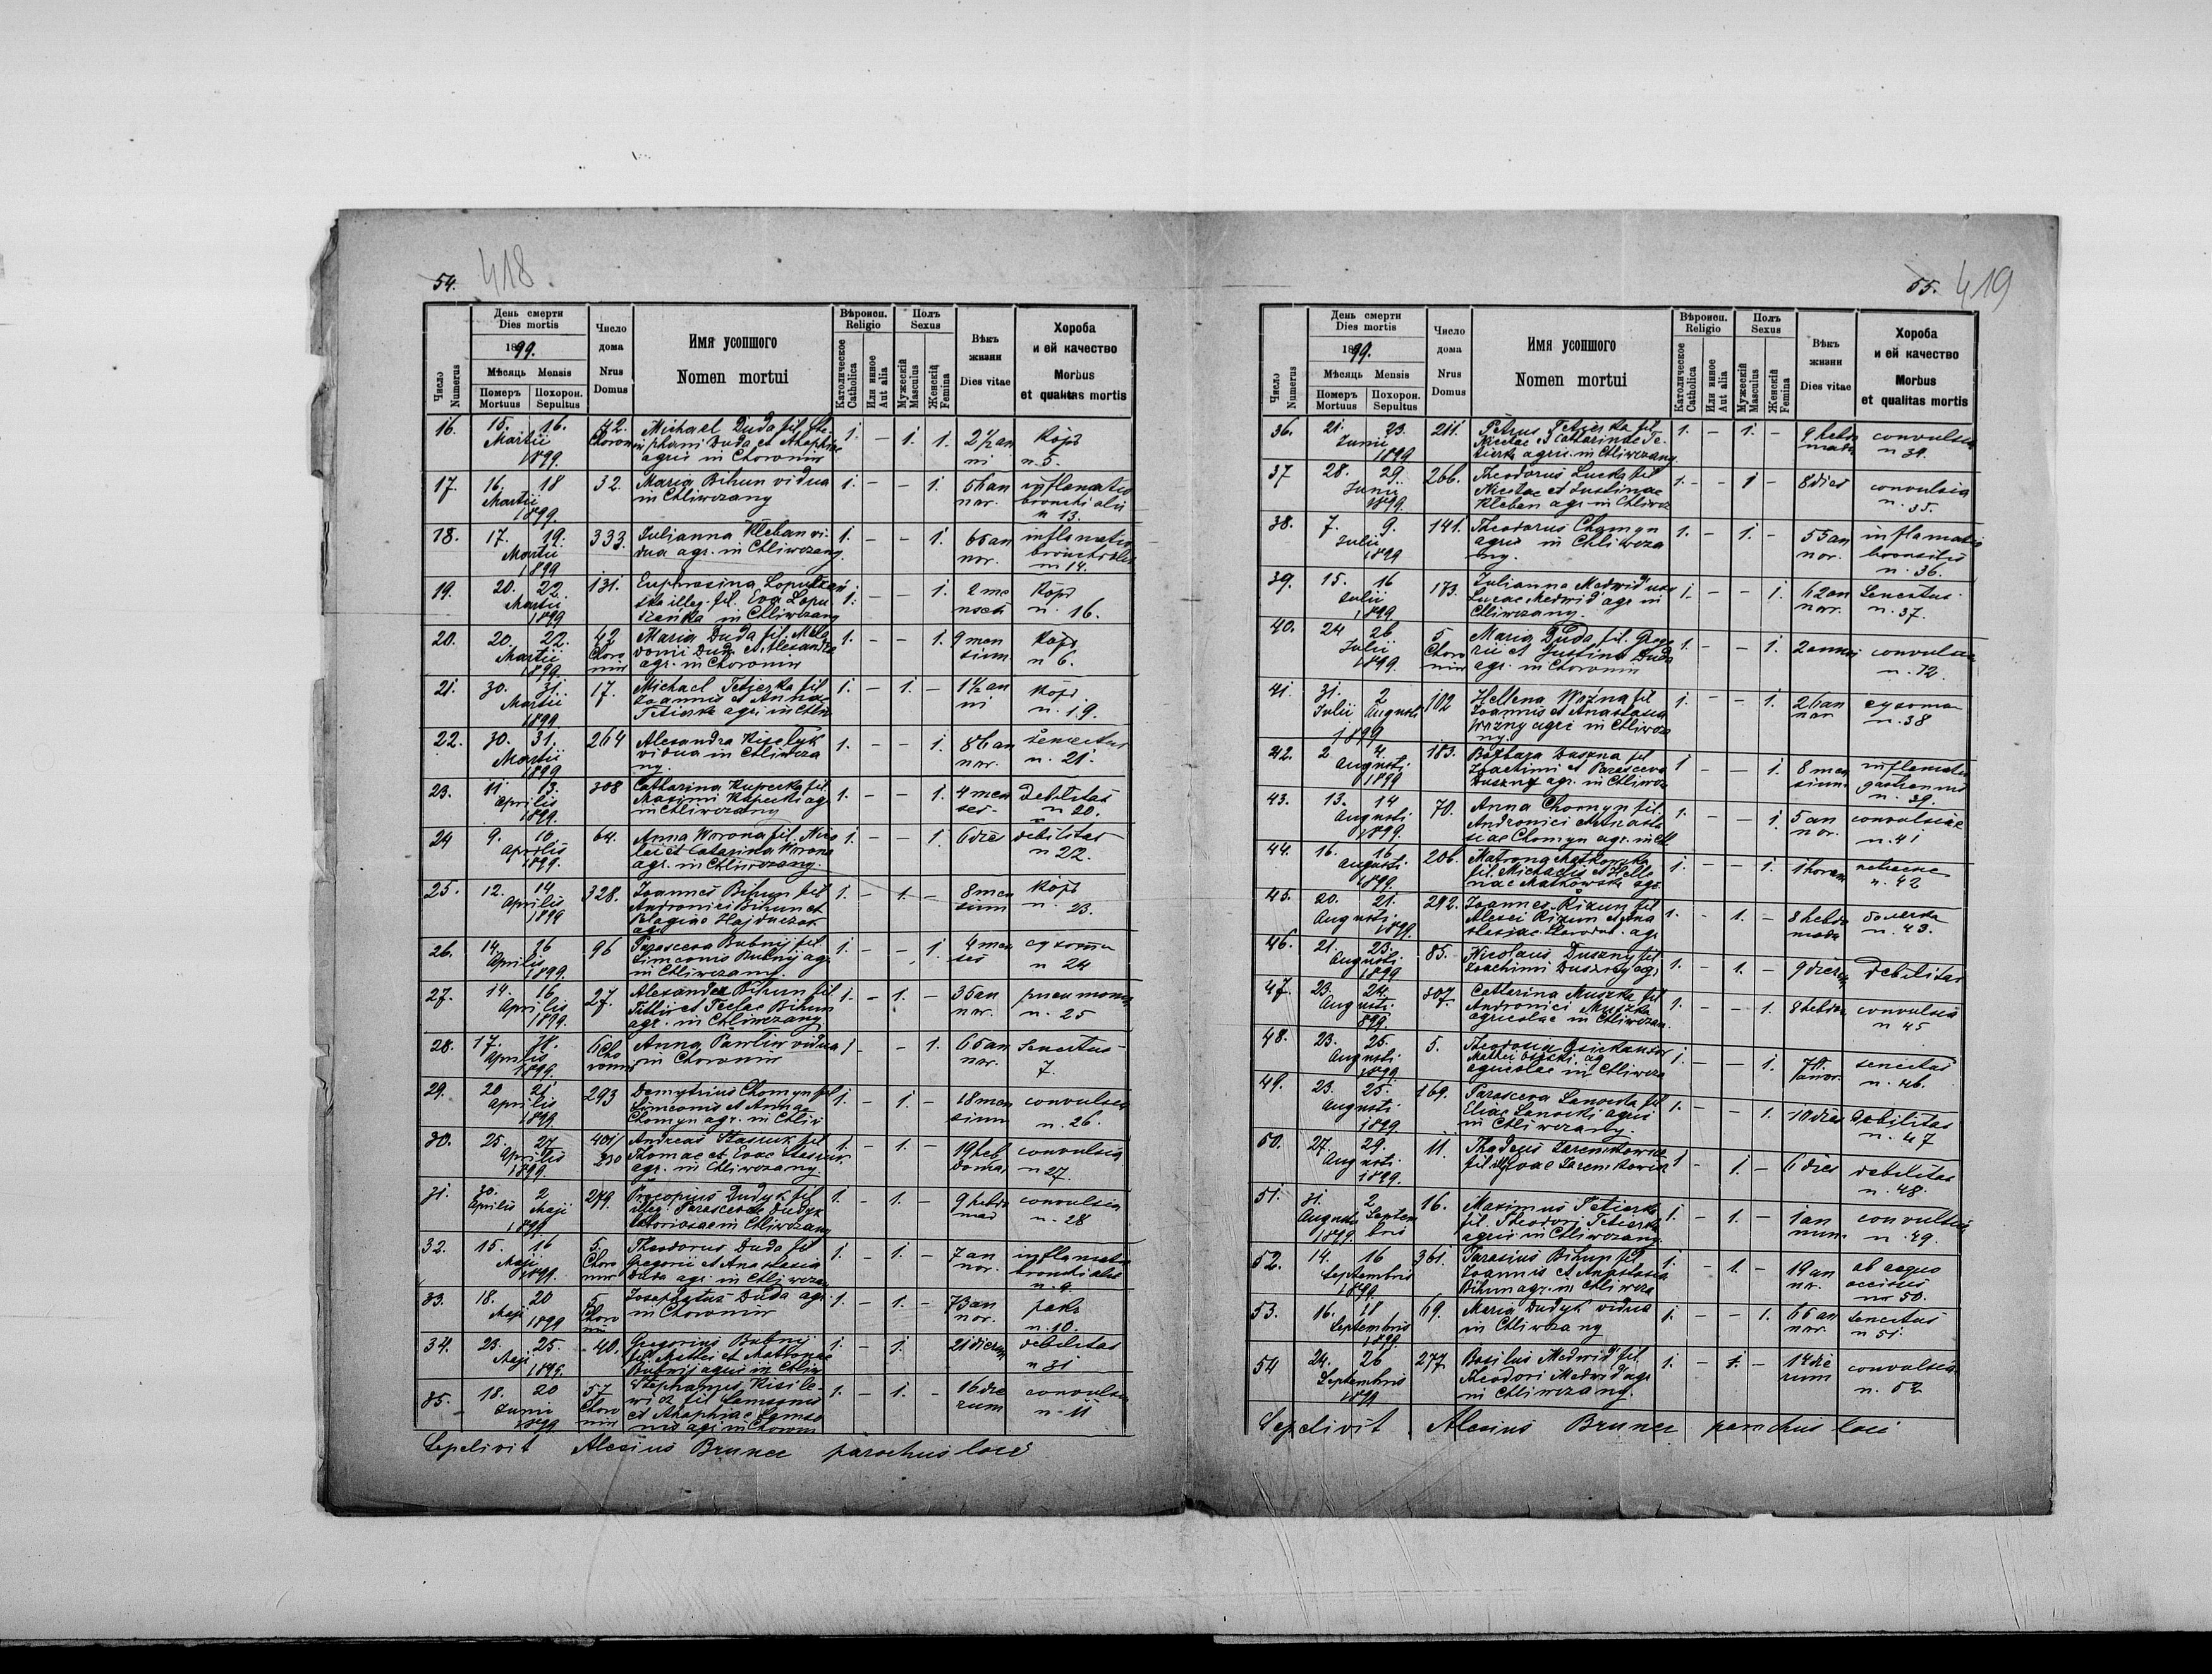 54. 418
Число Numerus
День смерти
Dies mortis
1899.
Мѣсяць Mensis
Померъ Mortuus
Похорон. Sepultus
Число дома
Nrus Domus
Имя усопшого
Nomen mortui
Вѣроисп. Religio
Католическое Catholica
Или инное Aut alia
Полъ Sexus
Мужескій Masculus
Женскій Femina
Вѣкъ жизни
Dies vitae
Хороба и ей качество
Morbus et qualitas mortis
16. 15. 16. Martii 1899. 42. Michael Duda fil. Ste-
phani Duda et Ahaphiae
agric in Choronin 1. – 1. 1. 2½ an
ni n. 5.
17. 16. 18 Martii 1899. 32. Maria Bihun vidua
in Chliwczany 1. – – 1. 56 an
nor. inflamatio
bronchialis
n 13.
18. 17. 19. Martii 1899 333. Iulianna Kleban vi-
dua agr. in Chliwczany. 1. – – 1. 65 an
nor. inflamatio
n 14.
19. 20. 22. Martii 1899 131. Euphrosina
illeg. fil. Eva Lopu
in Chliwczany 1. – – 1. 2 me
n. 16.
20. 20. 22. Martii 1899. 42 Maria Duda fil.
Duda et Alexandra
agr. in Choronin 1. – – 1. 9 men
sium n 6.
21. 30. 31. Martii 1899 17. Michael Tetierka fil
Ioannis et Anna
Tetierka agr. in Chliw 1. – 1. – 1½ an
ni n. 19.
22. 30. 31. Martii 1899 264 Alexandra Kiselyk
vidua in Chliwcza
ny. 1. – – 1. 86 an
nor. Senectus
n. 21.
23. 11 13. Aprilis 1899. 308 Catharina Kupecka fil.
Maximi Kupecki agr
in Chliwczany 1. – – 1. 4 men
ses Debilitas
n 20.
24 9. 10. Aprilis 1899. 64. Anna Wrona fil. Nico
lai et Catarina Wrona
agr. in Chliwczany. 1. – – 1. 6 die debilitas
n 22.
25. 12. 14 Aprilis 1899 328. Ioannes Bihun fil
Andronici Bihun et
Pelagiae Hajduczok
agr 1. – 1. – 8 men
sium n. 23.
26. 14. 16 Aprilis 1899. 96 Parasceva Bubnij fil.
Simeonis Bubnij agr.
in Chliwczany. 1. – – 1. 4 men
ses сухоты
n 24
27. 14. 16. Aprilis 1899. 27. Alexander Bihun fil
Tittii et Teclae Bihun
agr. in Chliwczany 1. – 1. – 36 an
nor. pneumonia
n. 25
28. 17. Aprilis 1899. Anna Pawliw vidua
in Choronin 1 – – 1. 65 an
nor. Senectus
7.
29. 20 21 Aprilis 1899 293 Demytrius Chomyn fil
Simeonis et Annae
Chomyn agr. in Chliw 1. – 1. – 18 men
sium convulsia
n. 26.
30. 25. 27 Aprilis 1899. Andreas Stasiuk fil
Thomae et Evae Stasiuk
agr. in Chliwczany. 1. – 1. – 19 heb
doma convulsia
n 27.
31. 30. Aprilis 2 Maji 1899. 279. Procopius Dudyk fil
illeg. Parascevae Dudyk
in Chliwczany 1. – 1. – 9 hebdo
mad convulsia
n. 28
32. 15. 16 Maji 1899. 5. Choro
nin Theodorus Duda fil
Gregorii et Anastasia
Duda agr. in Chliwczan 1. – 1. – 7 an
nor. inflamatio
bronchialis
n. 9.
33. 18. 20 Maji 1899 5 Choro
nin Iosaphatus Duda agr.
in Choronin 1. – 1. – 73 an
nor. n. 10.
34. 23. 25. Maji 1899. 40. Gregorius Bubnij
fil Mattei et Matronae
Bubnij agric in Chliw 1. – 1. 21 dierum debilitas
n 31
35. 18. 20 Iunii 1899 57 Choro
nin Stephanus Kisile-
wicz fil Samsonis
et Ahaphiae
agr. in Choron 1. – 1. – 16 die
rum convulsia
n. 11
Sepelivit Alexius Brunec parochus loci
55. 419
Число Numerus
День смерти
Dies mortis
1899.
Мѣсяць Mensis
Померъ Mortuus
Похорон. Sepultus
Число дома
Nrus Domus
Имя усопшого
Nomen mortui
Вѣроисп. Religio
Католическое Catholica
Или инное Aut alia
Полъ Sexus
Мужескій Masculus
Женскій Femina
Вѣкъ жизни
Dies vitae
Хороба и ей качество
Morbus et qualitas mortis
36. 21. 23. Iunii 1899 211. Petrus Tetierka fil.
Nicetae et Catharinae Te-
tierka agric. in Chliwczany 1. – 1. – 9 hebdo
mada convulsia
n 34.
37 28. 29. Iunii 1899. 266. Theodorus Lucka fil
Nicetae et Iustinae
Kleban agr. in Chliwcz 1. – 1 – 8 dies convulsia
n. 35.
38. 7. 9. Iulii 1899 141. Theodorus Chomyn
agric in Chliwcza
ny. 1. – 1. – 55 an
nor. inflamatio
n. 36.
39. 15. 16 Iulii 1899. 173. Iulianna Medwid uxor
Lucae Medwid agr in
Chliwczany. 1. – – 1. 62 an
nor. Senectus
n. 37.
40. 24 26. Iulii 1899. 5 Choro
nin Maria Duda fil. Grego
rii et Justina Duda
agr. in Choronin 1. – – 1. 2 annor convulsia
n. 12.
41. 31. Iulii 2 Augusti 1899 102 Hellena Woźna fil
Ioannis et Anastasia
Woźny agric in Chliwcza
ny. 1. – – 1. 26 an
nor n. 38
42. 2 4. Augusti 1899 183. Barbara Duszna fil
Ioachimi et Parasceva
Duszny agr. in Chliwcza 1 – – 1. 8 men
sium inflamatio
n. 39.
43. 13. 14 Augusti 1899. 70. Anna Chomyn fil.
Andronici et Anasta
siae Chomyn agr. in Chl. 1. – – 1. 5 an
nor. convulsiae
n. 41
44. 16. 16 Augusti 1899. 206. Matrona Matkowska
fil. Michaelis et Helle
nae Matkowski agr. 1. – – 1. 1 horam
n. 42
45. 20. 21. Augusti 1899. 292. Ioannes Rikun fil
Alexei Rikun et Ana
stasiae agr. 1. – 1. – 8 hebdo
mada n. 43.
46. 21. 23. Augusti 1899 85. Nicolaus Duszny fil
Ioachimi Duszny agr. 1. – 1. – 9 dierum debilitas
47. 23. 24. Augusti 899. 307. Cattarina Muszka fil
Andronici Muszka
agricolae in Chliwczan. 1. – – 1. 8 hebdo convulsia
n 45
48. 23. 25. Augusti 1899 5. Theodosia
Mattei
agricolae in Chliwcza 1. – – 1. annor. senectus
n. 46
49. 23. 25. Augusti 1899 169. Parasceva Sanocka fil
Eliae Sanocki agric
in Chliwczany. 1. – – 1. 10 dies debilitas
n. 47
50. 27. 29. Augusti 1899. 11. Thadeus Jaremkowicz
fil Evae Jaremkowicz 1 – 1. – 6 dies debilitas
n. 48.
51. 31. Augusti 2 Septem
bris 1899. 16. Maximus Tetierka
fil. Theodori Tetierka
agric in Chliwczany. 1. – 1. – 1 an
num. convulsia
n. 49.
52. 14. 16 Septembris 1899. 361. Tarasius Bihun fil
Ioannis et Anastasia
Bihun agr. in Chliwcza 1. – 1. – 19 an
nor. ab aequo
occisus
nr 50.
53. 16. 18 Septembris 1899. 69. Maria Dudyk vidua
in Chliwczany 1. – – 1. 65 an
nor. Senectus
n 51.
54 24. 26 Septembris 1899 277 Basilus Medwid fil.
Theodori Medwid agr
in Chliwczany. 1. – 1. – 14 die
rum convulsia
n. 52
Sepelivit Alexius Brunec parochus loci